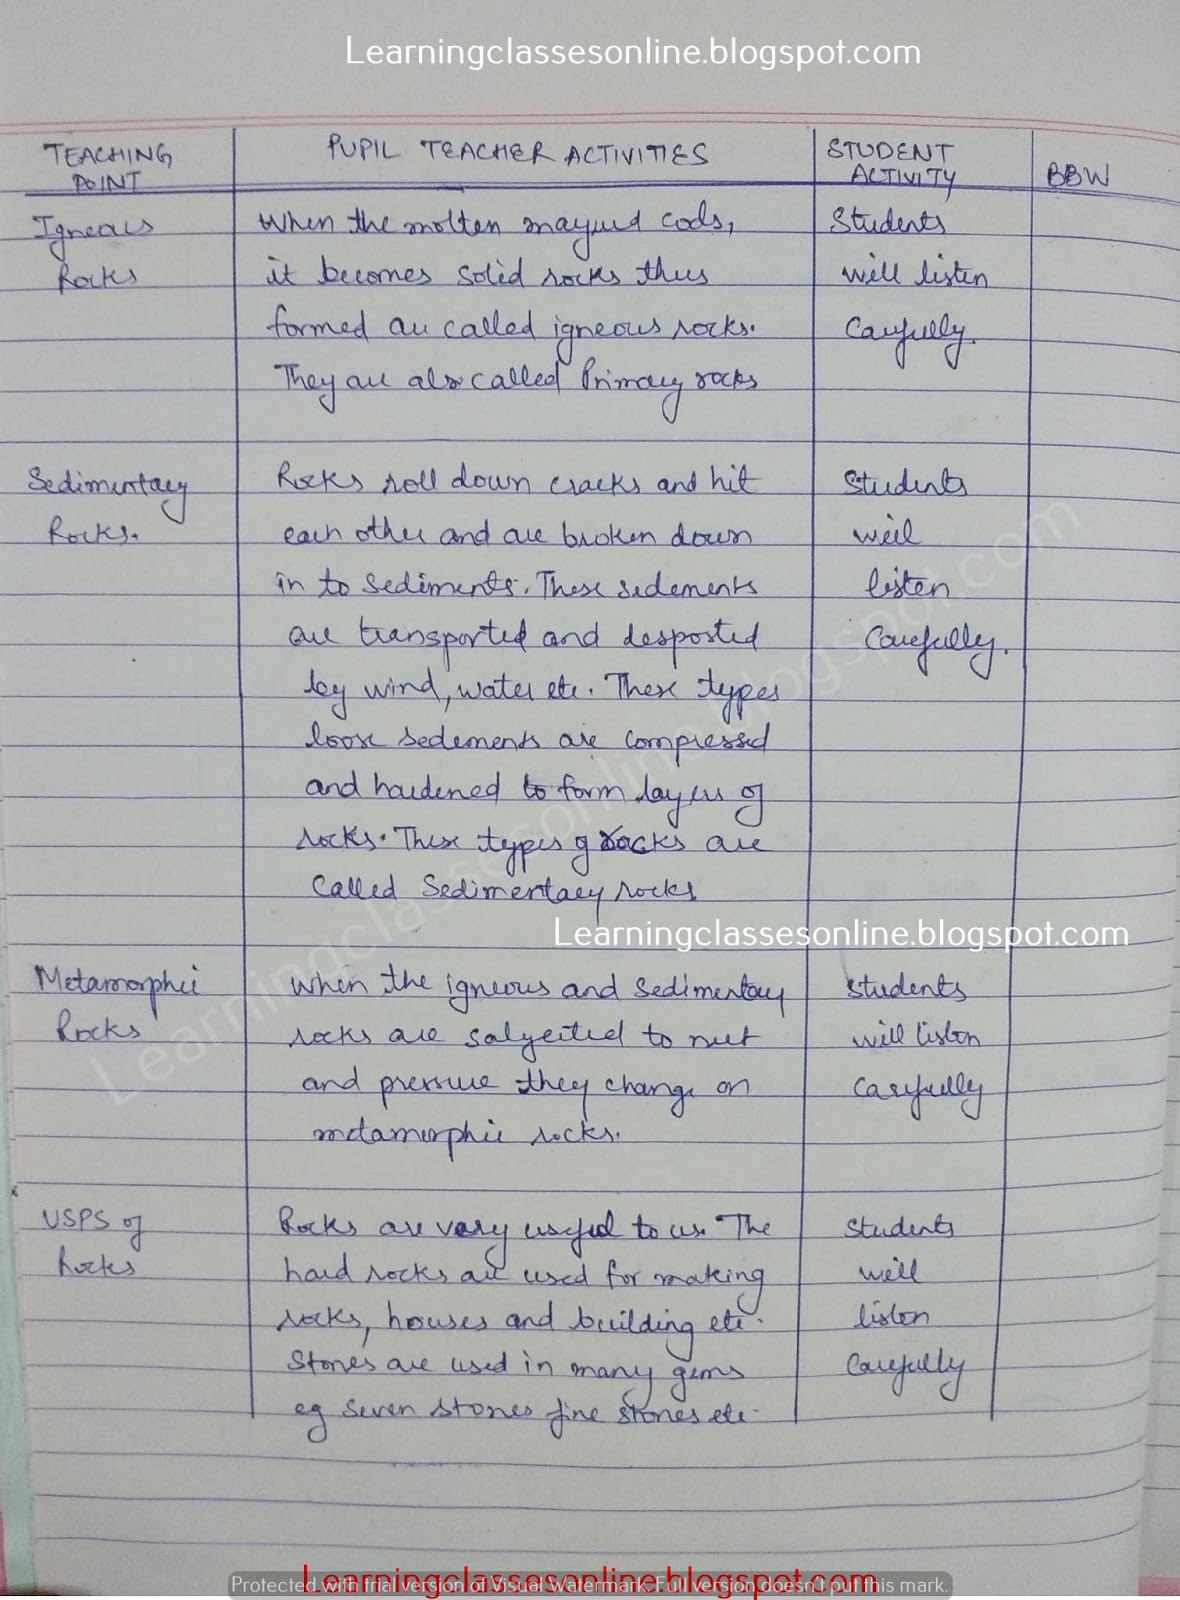 Learningclassesonline.blogspot.com
TEACHING POINT
PUPIL TEACHER ACTIVITIES
STUDENT ACTIVITY
BBW
Igneous
Rocks
When the molten cools,
it becomes solid rocks thus
formed are called igneous rocks.
They are also called Primary rocks
Students
will listen
Carefully.
Sedimentary
Rocks.
Rocks roll down cracks and hit
each other and are broken down
in to sediments. These sedements
are transported and desposted
by wind, water etc. These types
loose sedements are compressed
and hardened to form layers of
rocks. These types of rocks are
Called Sedimentary rocks
Students
will
listen
Carefully.
Learningclassesonline.blogspot.com
Metamorphic
Rocks
When the igneous and Sedimentary
rocks are to
and pressure they change on
metamorphic rocks.
Students
will listen
Carefully
USPS of
Rocks
Rocks are very useful to us. The
hard rocks are used for making
rocks, houses and building etc.
Stones are used in many gems
eg Seven stones fine stones etc.
Students
will
listen
Carefully
Learningclassesonline.blogspot.com
Learningclassesonline.blogspot.com
Protected with trial version of Visual Watermark. Full version doesn't put this mark.